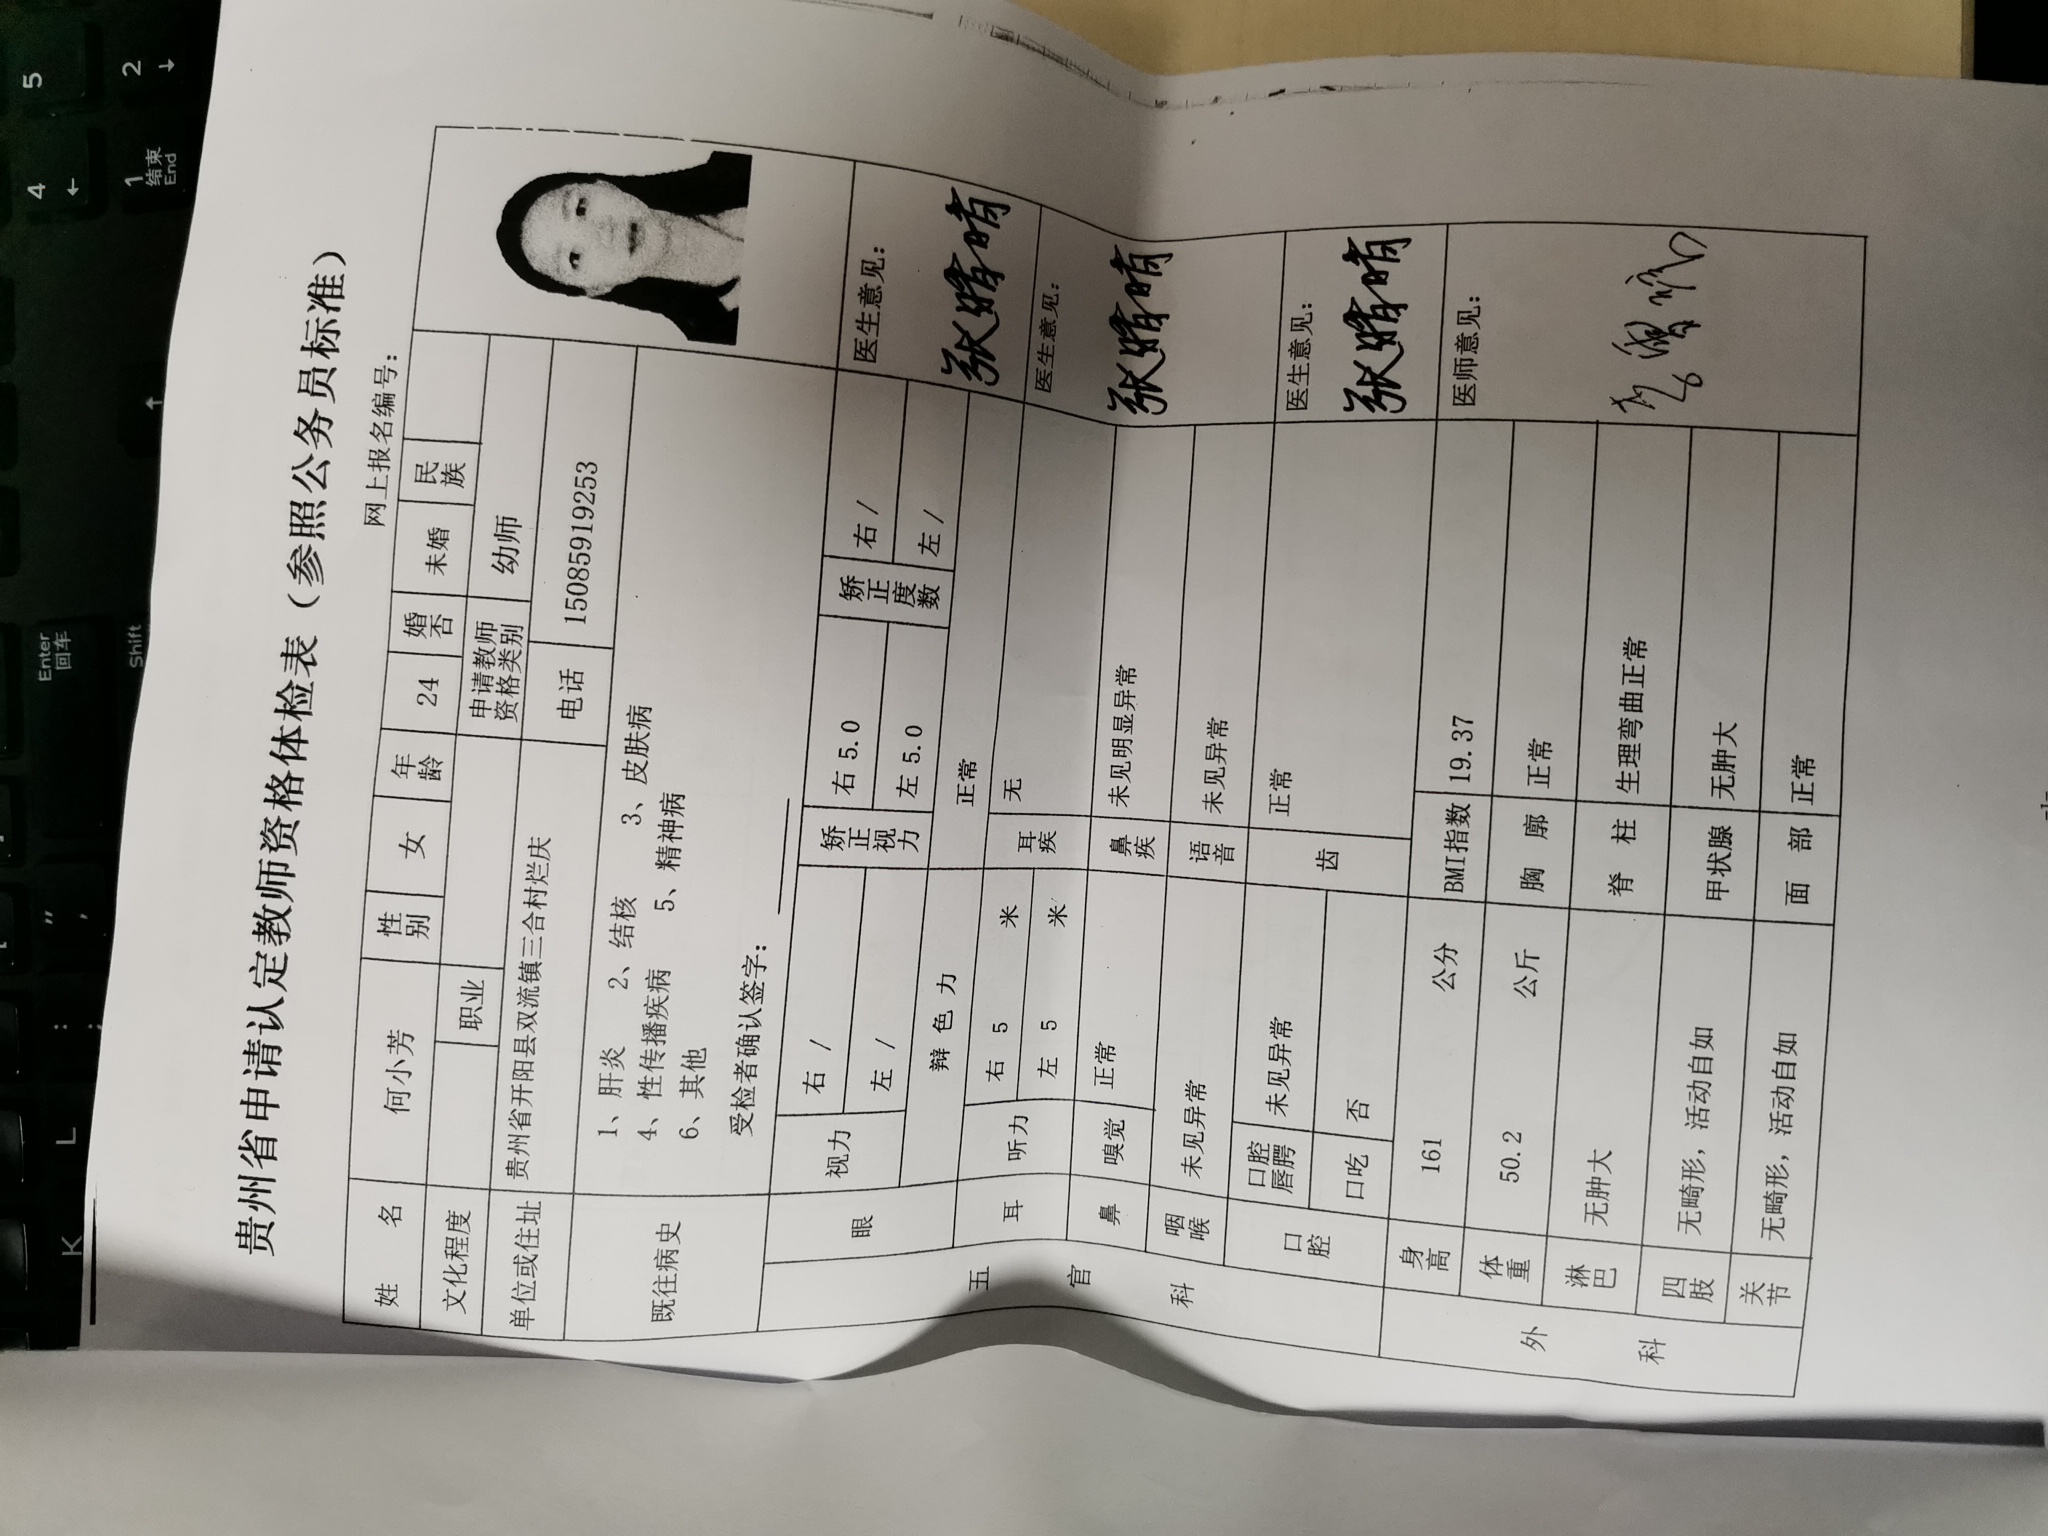 贵州省申请认定教师资格体检表（参照公务员标准）
网上报名编号：
姓 名 何小芳 性别 女 年龄 24 婚否 未婚 民族
文化程度 职业 申请教师资格类别 幼师
单位或住址 贵州省开阳县双流镇三合村烂庆 电话 15085919253
既往病史 1、肝炎 2、结核 3、皮肤病
4、性传播疾病 5、精神病
6、其他
受检者确认签字：
五官科
眼 视力 右 / 矫正视力 右 5.0 矫正度数 右 / 医生意见：
左 / 左 5.0 左 / 张婧晴
辩 色 力 正常
耳 听力 右 5 米 耳疾 无 医生意见：
左 5 米 张婧晴
鼻 嗅觉 正常 鼻疾 未见明显异常
咽喉 未见异常 语音 未见异常
口腔 口腔唇腭 未见异常 齿 正常 医生意见：
口吃 否 张婧晴
外科
身高 161 公分 BMI指数 19.37 医师意见：
体重 50.2 公斤 胸 廓 正常
淋巴 无肿大 脊 柱 生理弯曲正常
四肢 无畸形，活动自如 甲状腺 无肿大
关节 无畸形，活动自如 面 部 正常
5
2
4
1
结束
End
Enter
回车
Shift
"
,
:
;
L
K